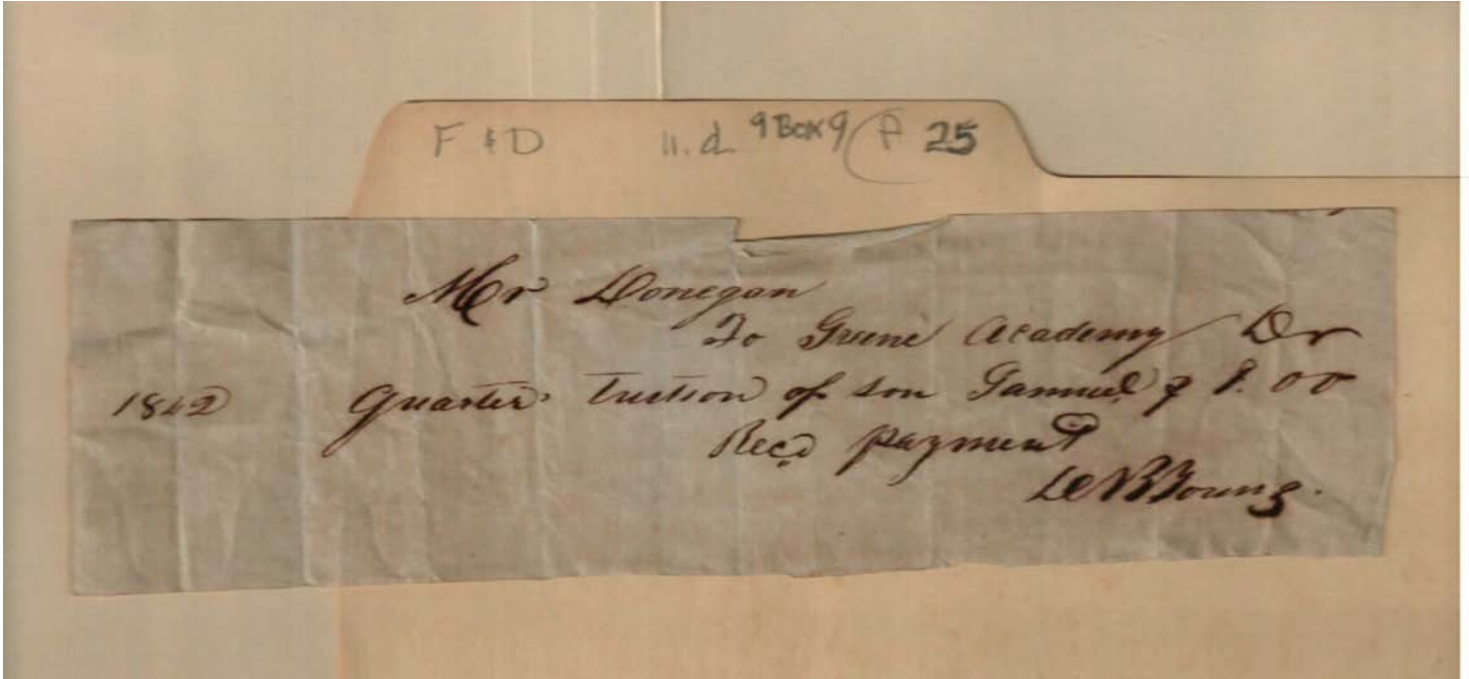 F & D n.d 9 Box 9 P 25
Mr Donegan
To Greene Academy Dr
1842 Quarter tuition of son Samuel $ 8.00
Rec,d payment
Young.